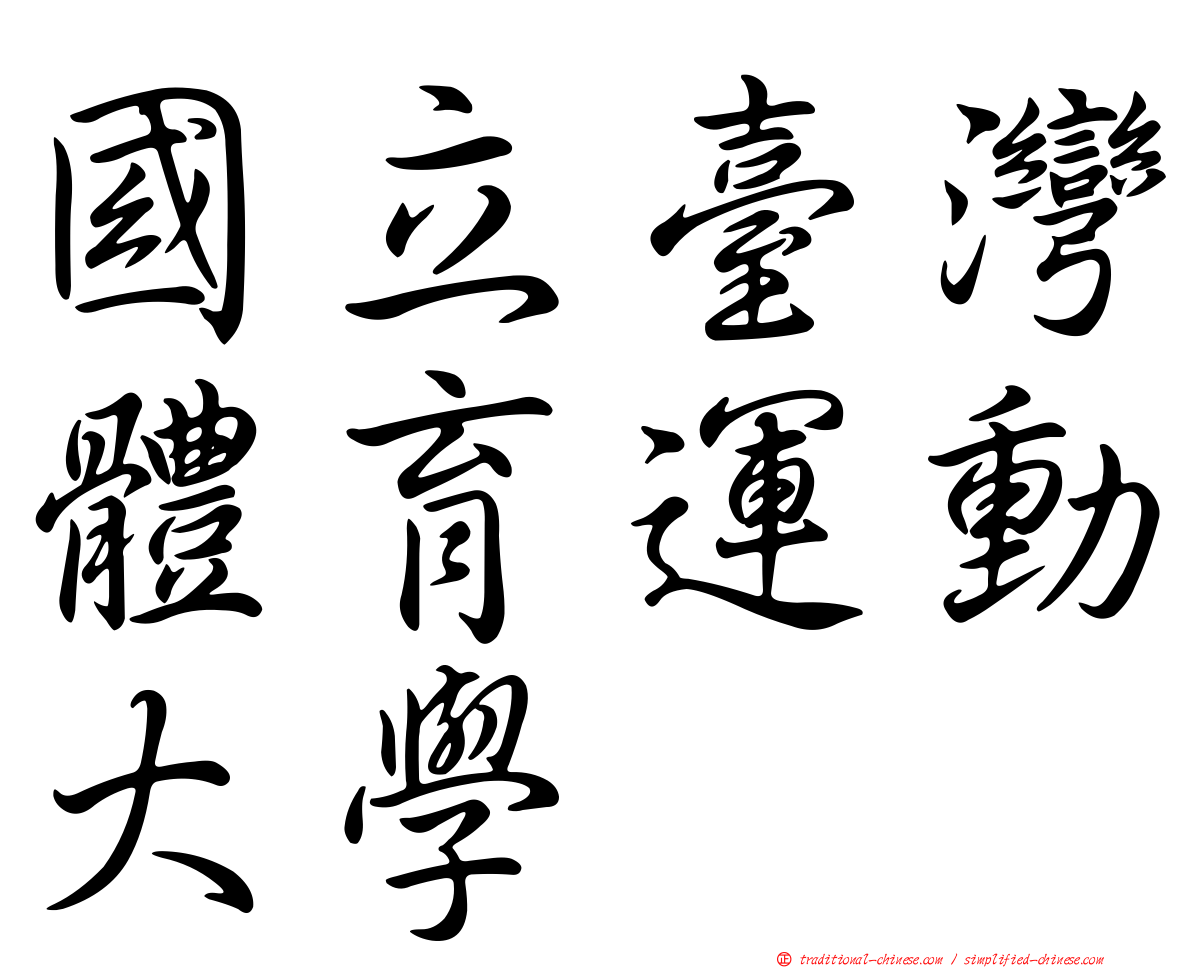 國立臺灣
體育運動
大學
正 traditional-chinese.com / simplified-chinese.com